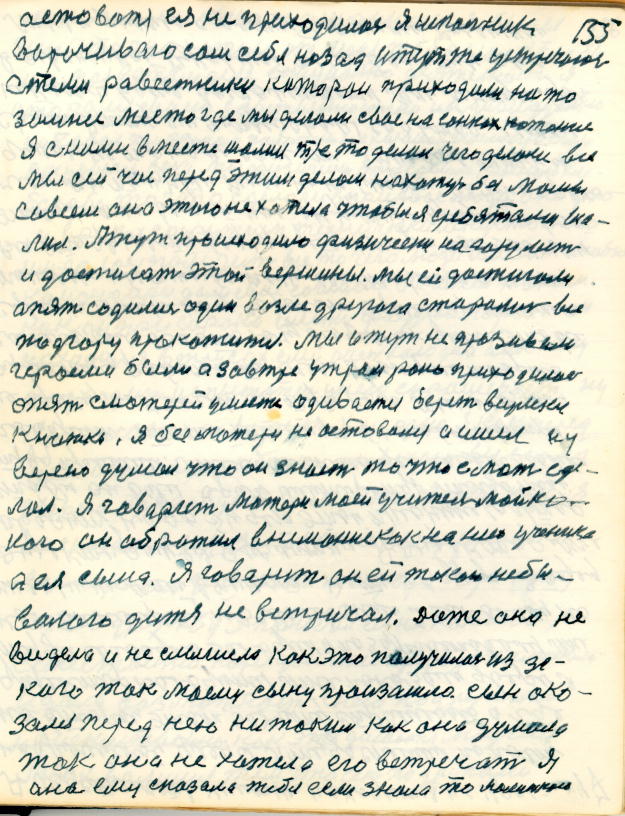 155
оставатся не приходилося я непомник
ворочиваго сам себя назад и тут же встречался
с теми равестники каторои приходили на то
зимне место где мы делали свае на санках катание
Я с ними вместе шалил то делал чего делали все
мы сейчас перед этим делом нахожус бы мамы
савсем она этого не хотела чтобы я с ребятами ша-
лил. А тут происходило физически на гору лест
и достигат этой вершины. мы ей достигали
опят содилися один возле другога старалися все
подгору прокотится. мы и тут не празивали
героеми были а завтре утрам рано приходилося
опят с матерей умести одивастся берет в руки
книжки. я бес матери не оставался а шел
верено думал что он знает то что может сде-
лал. Я говарит матери моей учител мойко-
кого он обротил внимание как на нее ученика
а ея сына. Я говарит он ей такои небы-
валого дитя не встричал. Даже она не
видела и не слышела как это получилося из за-
кого так моему сыну произашло. сын ока-
зался перед нею ни таким как она думала
так она не хатела его встречат Я
она ему сказала тебя если знала то